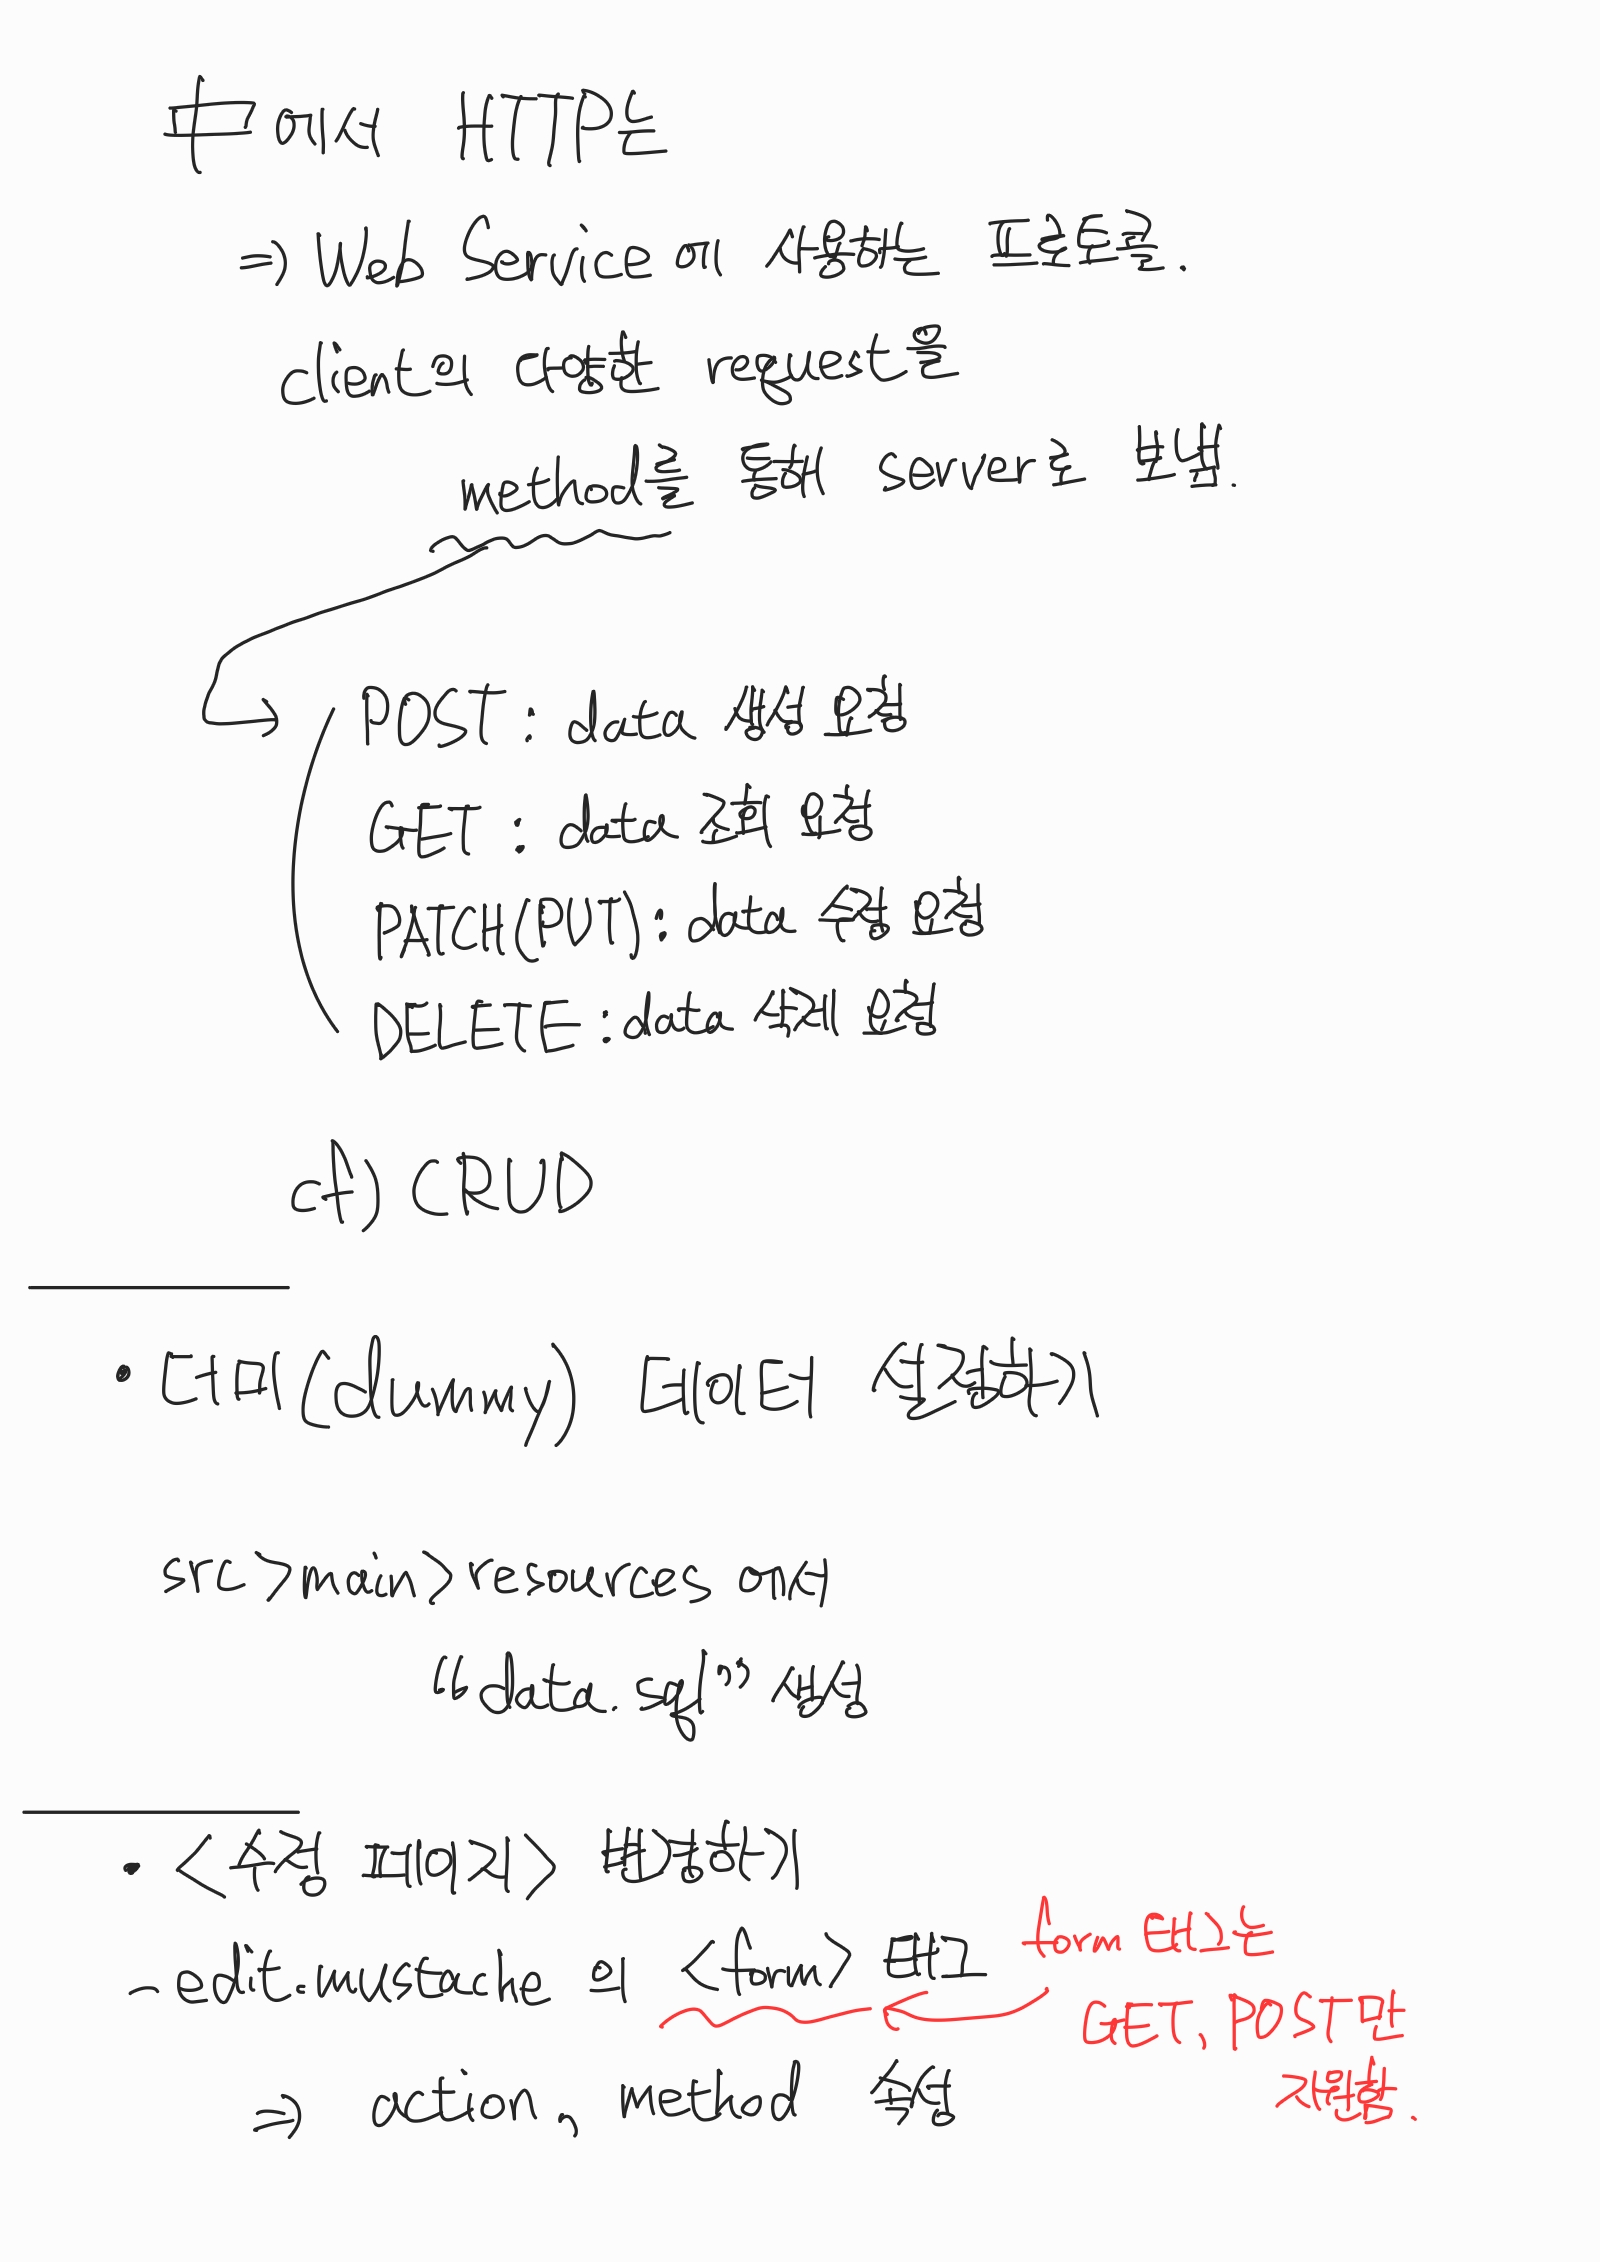 中에서 HTTP는
⇒ Web Service에 사용하는 프로토콜.
client의 다양한 request을
method를 통해 server로 보냄.
POST : data 생성 요청
GET : data 조회 요청
PATCH(PUT) : data 수정 요청
DELETE : data 삭제 요청
cf) CRUD
• 더미(dummy) 데이터 설정하기
src>main>resources에서
“data.sql” 생성
• <수정 페이지> 변경하기
- edit.mustache의 <form> 태그
form 태그는
GET, POST만
지원함.
⇒ action, method 속성